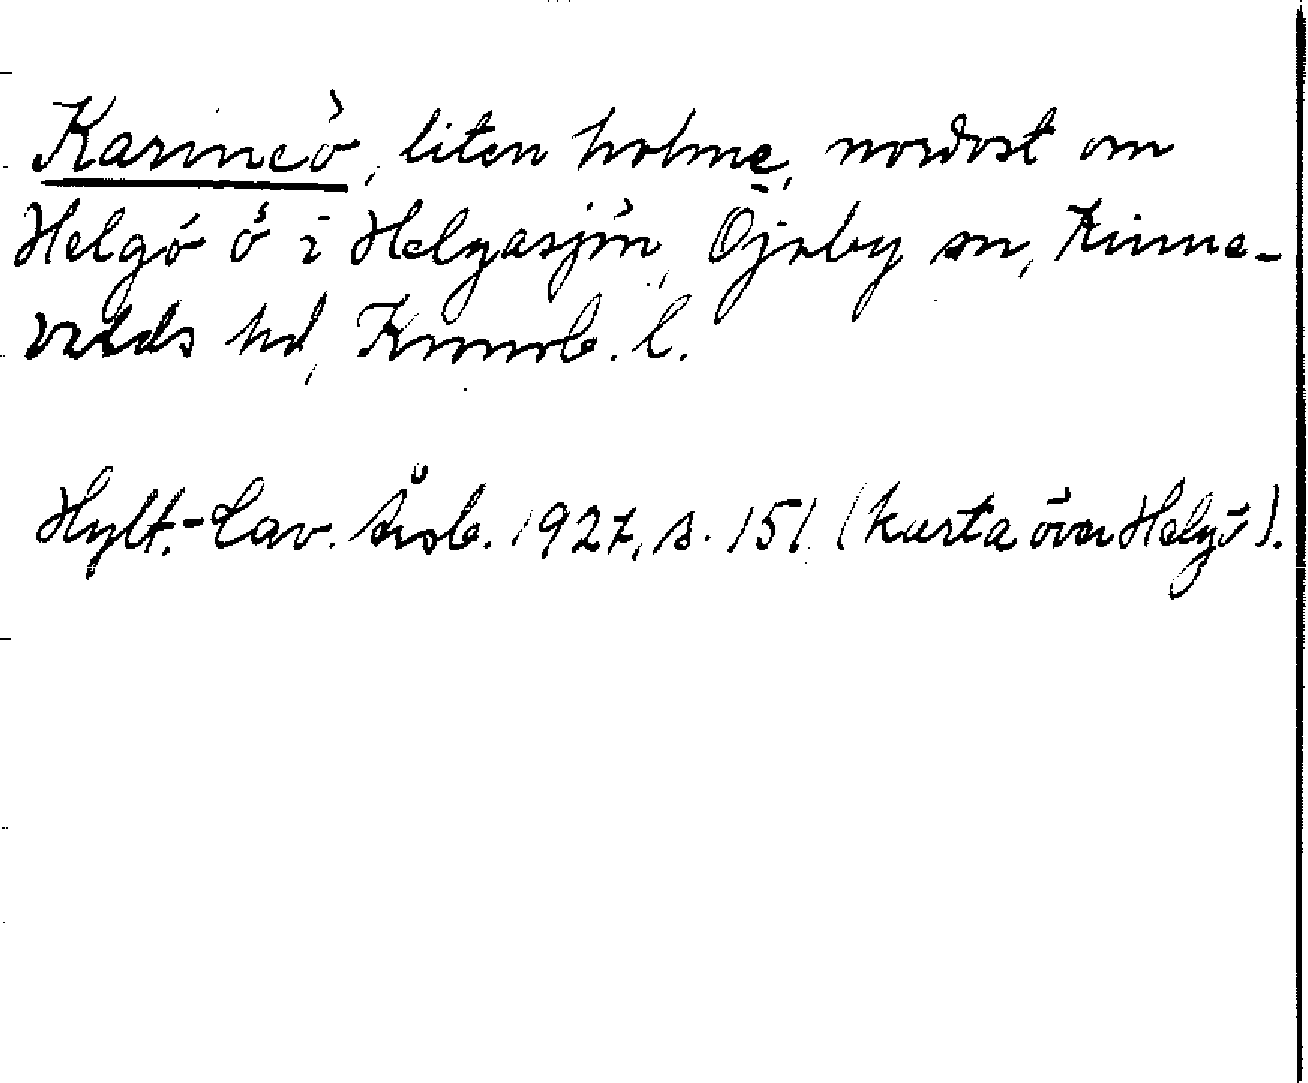 Karineö, liten holme, nordost om
Helgö ö i Helgasjön, Öjaby sn, Kinne-
valds hd, Kronob. l.
Hylt.-Cav. Årsb. 1927, s. 151 (karta över Helgö).